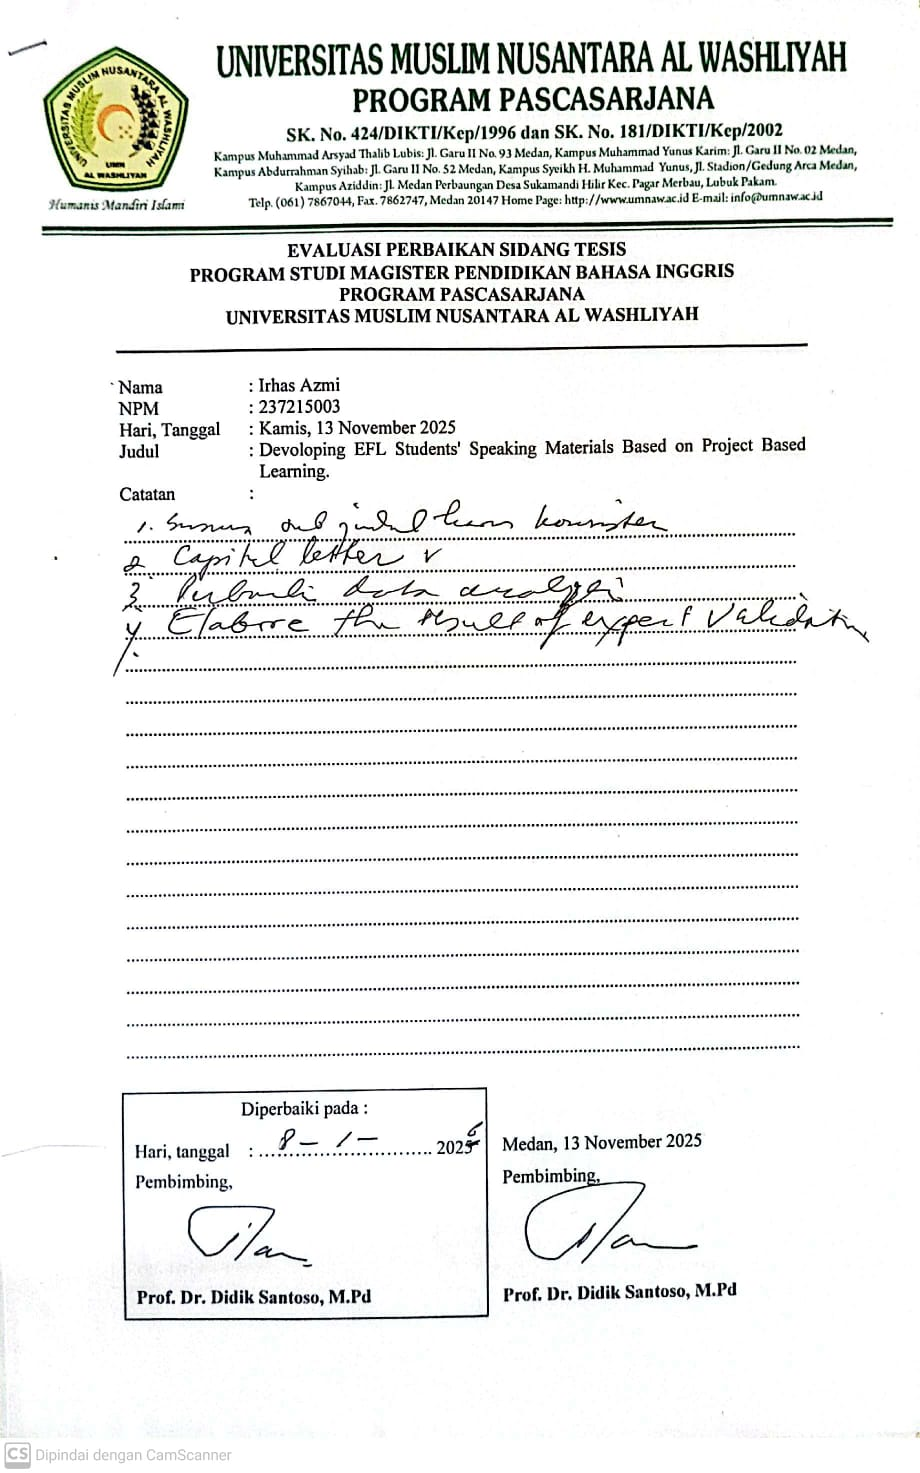 UNIVERSITAS MUSLIM NUSANTARA AL WASHLIYAH
UNIVERSITAS MUSLIM NUSANTARA AL WASHLIYAH
UMN
AL WASHLIYAH
Humanis Mandiri Islami
PROGRAM PASCASARJANA
SK. No. 424/DIKTI/Kep/1996 dan SK. No. 181/DIKTI/Kep/2002
Kampus Muhammad Arsyad Thalib Lubis: Jl. Garu II No. 93 Medan, Kampus Muhammad Yunus Karim: Jl. Garu II No. 02 Medan,
Kampus Abdurrahman Syihab: Jl. Garu II No. 52 Medan, Kampus Syeikh H. Muhammad Yunus, Jl. Stadion/Gedung Arca Medan,
Kampus Aziddin: Jl. Medan Perbaungan Desa Sukamandi Hilir Kec. Pagar Merbau, Lubuk Pakam.
Telp. (061) 7867044, Fax. 7862747, Medan 20147 Home Page: http://www.umnaw.ac.id E-mail: info@umnaw.ac.id
EVALUASI PERBAIKAN SIDANG TESIS
PROGRAM STUDI MAGISTER PENDIDIKAN BAHASA INGGRIS
PROGRAM PASCASARJANA
UNIVERSITAS MUSLIM NUSANTARA AL WASHLIYAH
Nama : Irhas Azmi
NPM : 237215003
Hari, Tanggal : Kamis, 13 November 2025
Judul : Devoloping EFL Students' Speaking Materials Based on Project Based
Learning.
Catatan :
1. Susun sub judul harus konsisten
2. Capital letter v
3. data analysis
4. the result of expert Validation
Diperbaiki pada :
Hari, tanggal : 8 – 1 – 2026
Pembimbing,
Prof. Dr. Didik Santoso, M.Pd
Medan, 13 November 2025
Pembimbing,
Prof. Dr. Didik Santoso, M.Pd
CS Dipindai dengan CamScanner